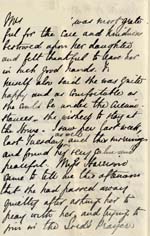 Mrs was most grate-
ful for the care and kindness
bestowed upon her daughter
and felt thankful to leave her
in such good hands.
herself also said she was quite
happy and as comfortable as
she could be under the circum-
stances. She wished to stay at
the Home. I saw her last week,
last Tuesday and this morning
and found her very
peaceful. Miss
came to tell me this afternoon
that she had passed away
quietly after asking her to
pray with her, and trying to
join in the Lord's Prayer.